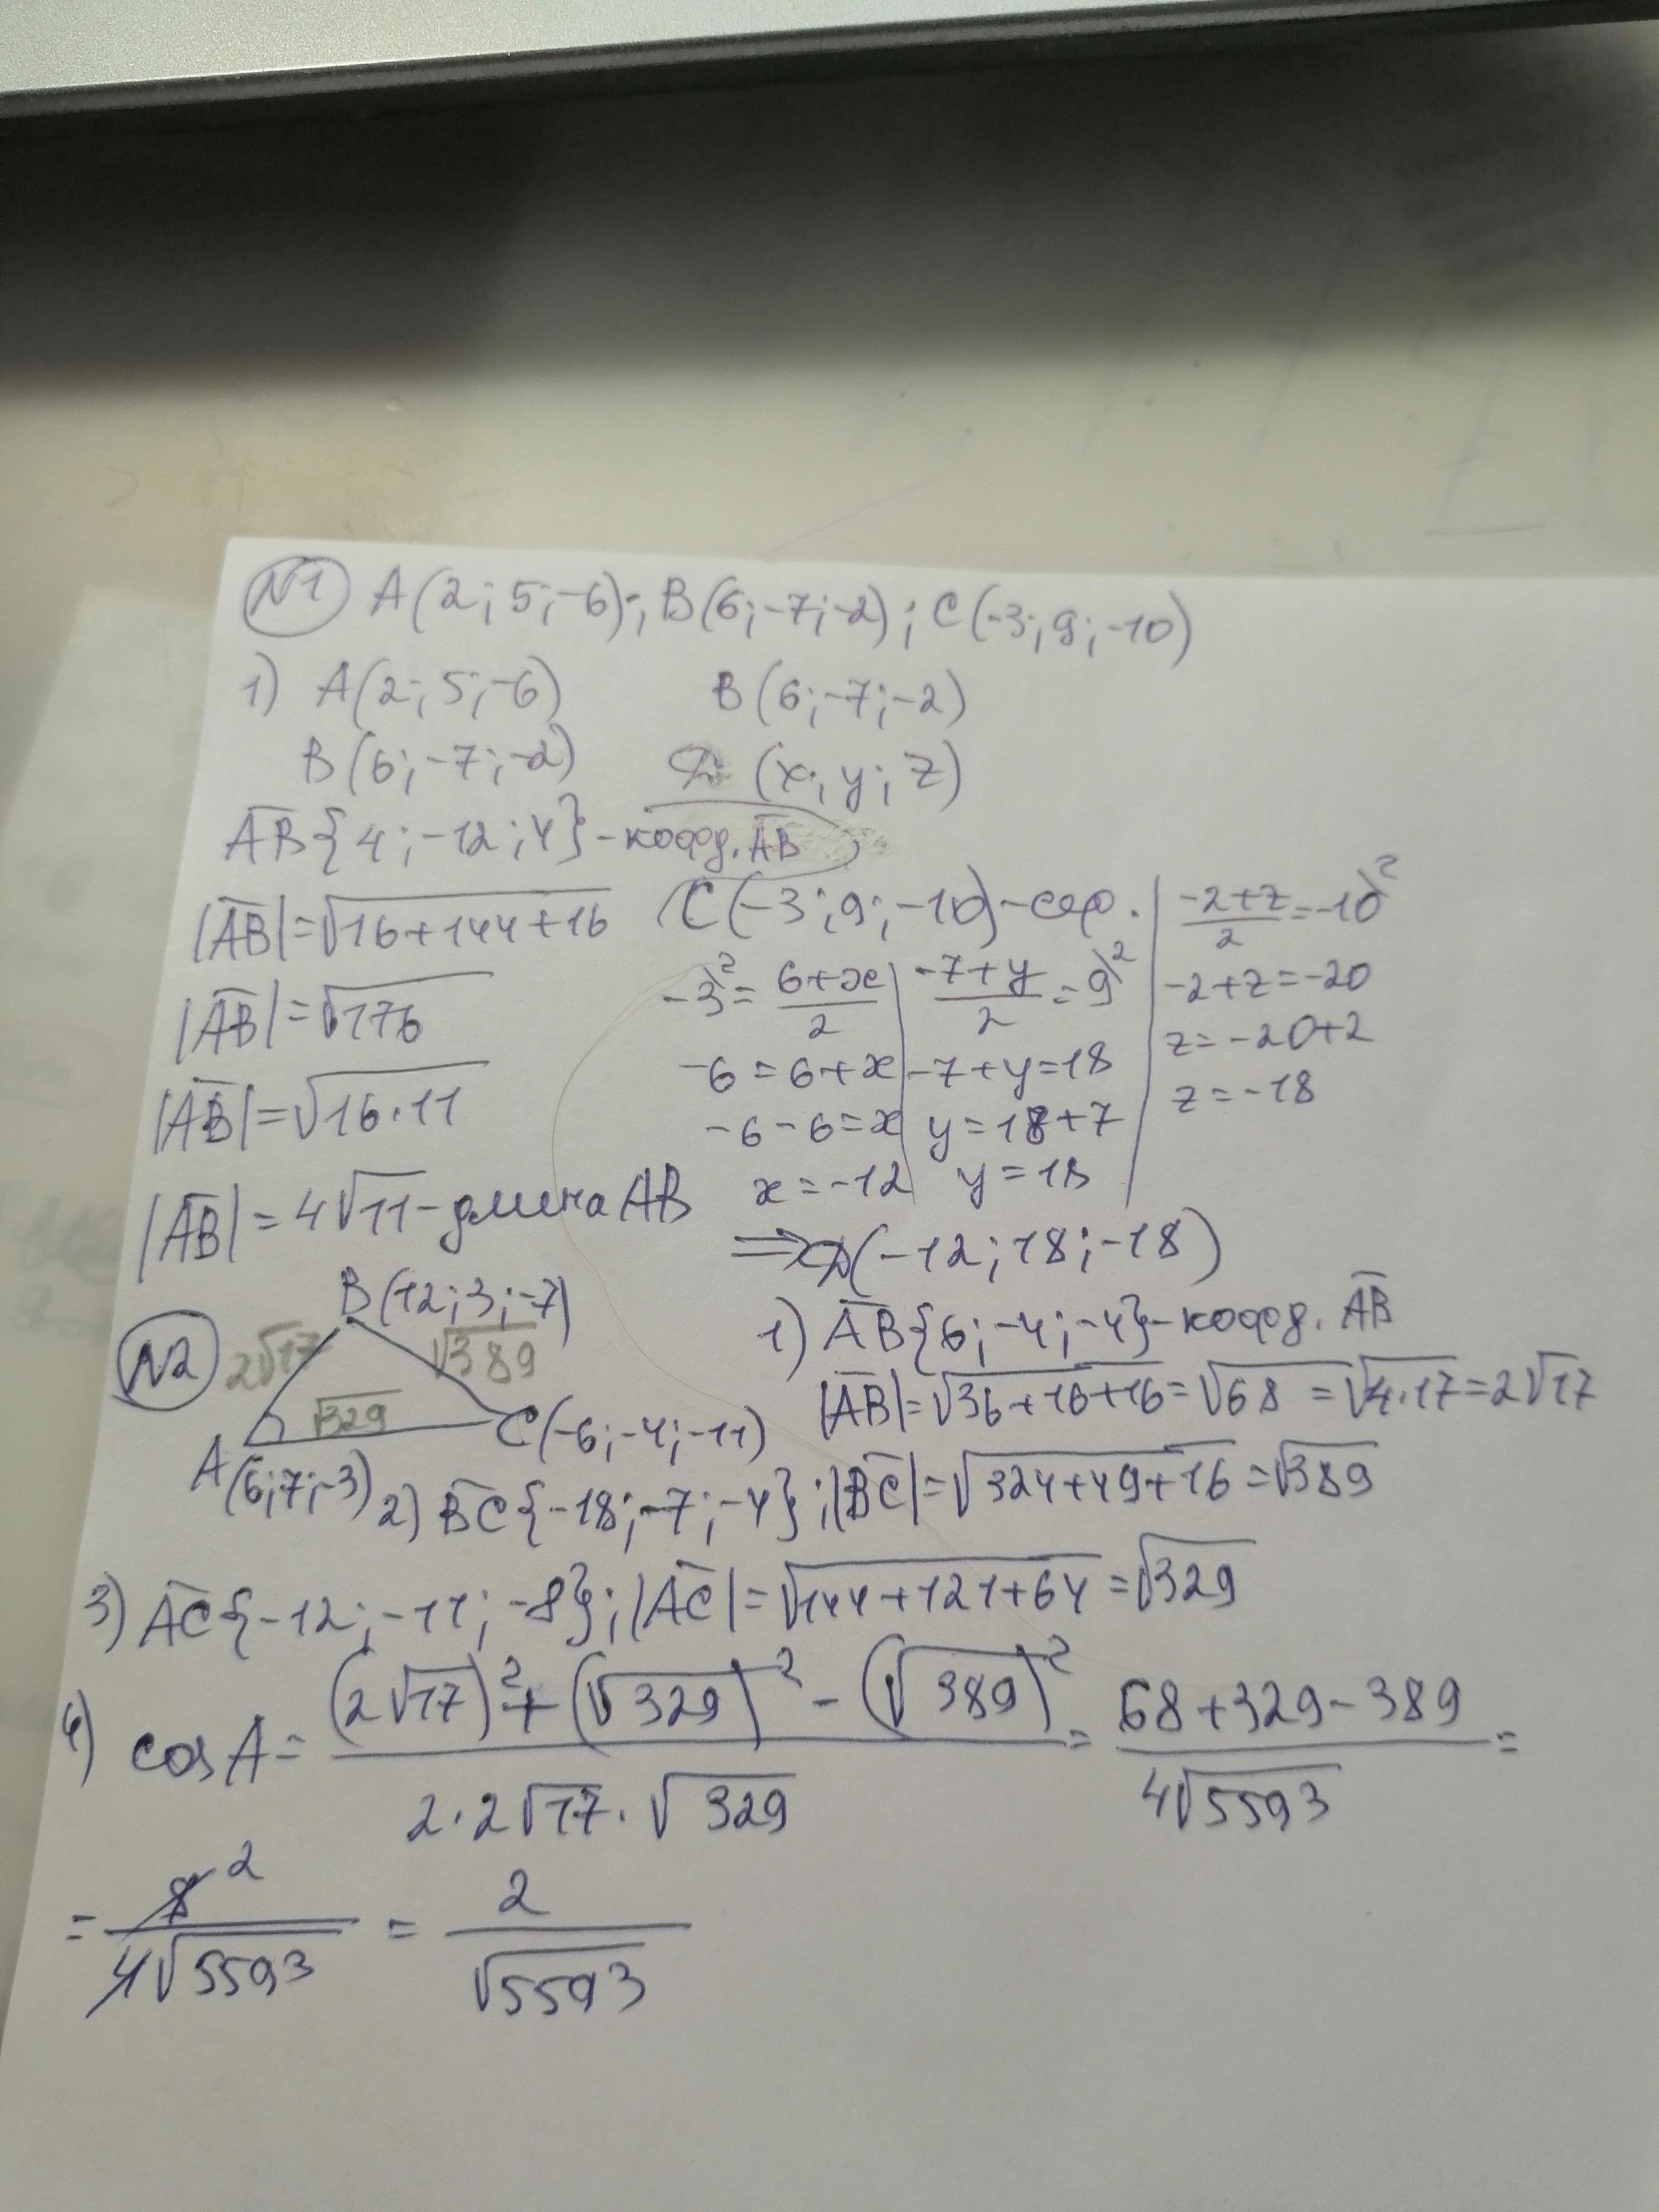 N1 A(2; 5; -6); B(6; -7; -2); C(-3; 9; -10)
1) A(2; 5; -6)
B(6; -7; -2)
AB{4; -12; 4} - коорд. AB
|AB| = √16+144+16
|AB| = √176
|AB| = √16·11
|AB| = 4√11 - длина AB
B(6; -7; -2)
D (x; y; z)
C(-3; 9; -10) - сер.
-3)² = 6+x/2
-6 = 6+x
-6-6=x
x = -12
-7+y/2 = 9)²
-7+y=18
y=18+7
y=18
-2+z/2 = -10)²
-2+z=-20
z=-20+2
z=-18
⇒ D(-12; 18; -18)
N2
B(12; 3; -7)
2√17
√389
√329
C(-6; -4; -11)
A(6; 7; -3)
1) AB{6; -4; -4} - коорд. AB
|AB| = √36+16+16 = √68 = √4·17 = 2√17
2) BC{-18; -7; -4}; |BC| = √324+49+16 = √389
3) AC{-12; -11; -8}; |AC| = √144+121+64 = √329
4) cos A = (2√17)² + (√329)² - (√389)² / 2·2√17·√329 = 68+329-389 / 4√5593 =
= 8 2 / 4√5593 = 2 / √5593